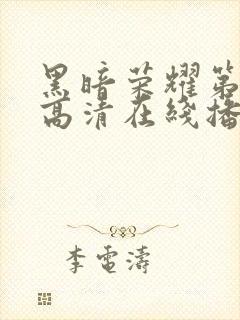 黑暗荣耀第
高清在线播
李電濤